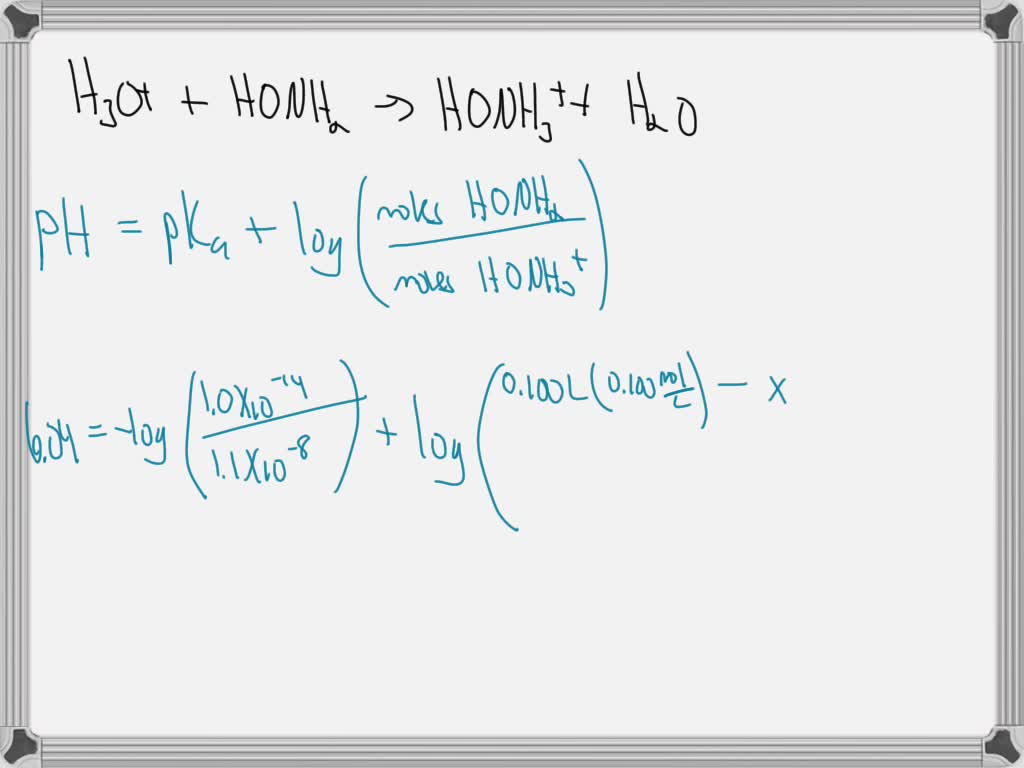 H₃O⁺ + HONH₂ → HONH₃⁺ + H₂O
pH = pKₐ + log (moles HONH₂ / moles HONH₃⁺)
6.04 = -log (1.0X10⁻¹⁴ / 1.1X10⁻⁸) + log (0.100L (0.100 mol/L) - x